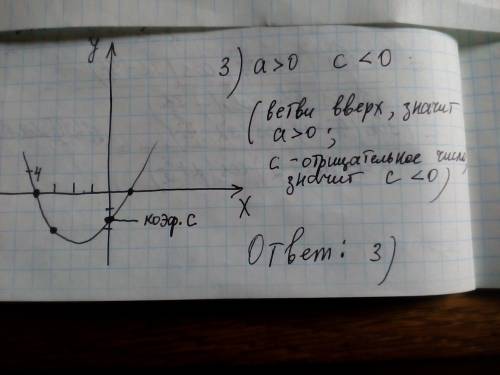 y
3) a>0 c<0
(ветви вверх, значит
a>0;
c - отрицательное число,
значит c<0)
-4
коэф. c
X
Ответ: 3)